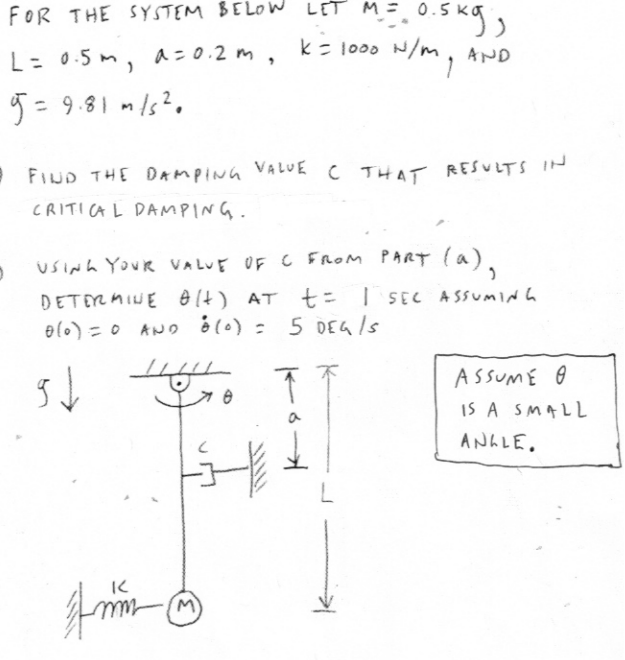 FOR THE SYSTEM BELOW LET M = 0.5 kg,
L = 0.5 m, a = 0.2 m, k = 1000 N/m, AND
g = 9.81 m/s².
) FIND THE DAMPING VALUE C THAT RESULTS IN
CRITICAL DAMPING.
) USING YOUR VALUE OF C FROM PART (a),
DETERMINE θ(t) AT t = 1 SEC ASSUMING
θ(0) = 0 AND θ̇(0) = 5 DEG/s
g
θ
a
C
L
K
M
ASSUME θ
IS A SMALL
ANGLE.